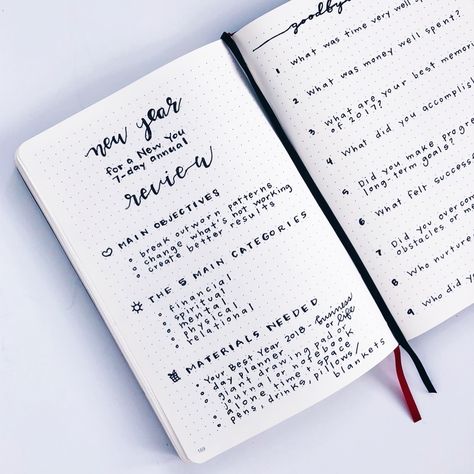 new year
for a New You
7-day annual
review
MAIN OBJECTIVES
break outworn patterns
change what's not working
create better results
THE 5 MAIN CATEGORIES
financial
spiritual
mental
physical
relational
MATERIALS NEEDED
Your Best Year 2018 - business or life
day planner
giant drawing pad or
journal or notebook
alone time & space
pens, drinks, pillows/blankets
159
goodby
1 What was time very well sp
2 What was money well spent?
3 What are your best memori
of 2017?
4 What did you accomplis
5 Did you make progre
long-term goals?
6 What felt success
7 Did you overcom
obstacles or me
8 Who nurture
9 Who did yo